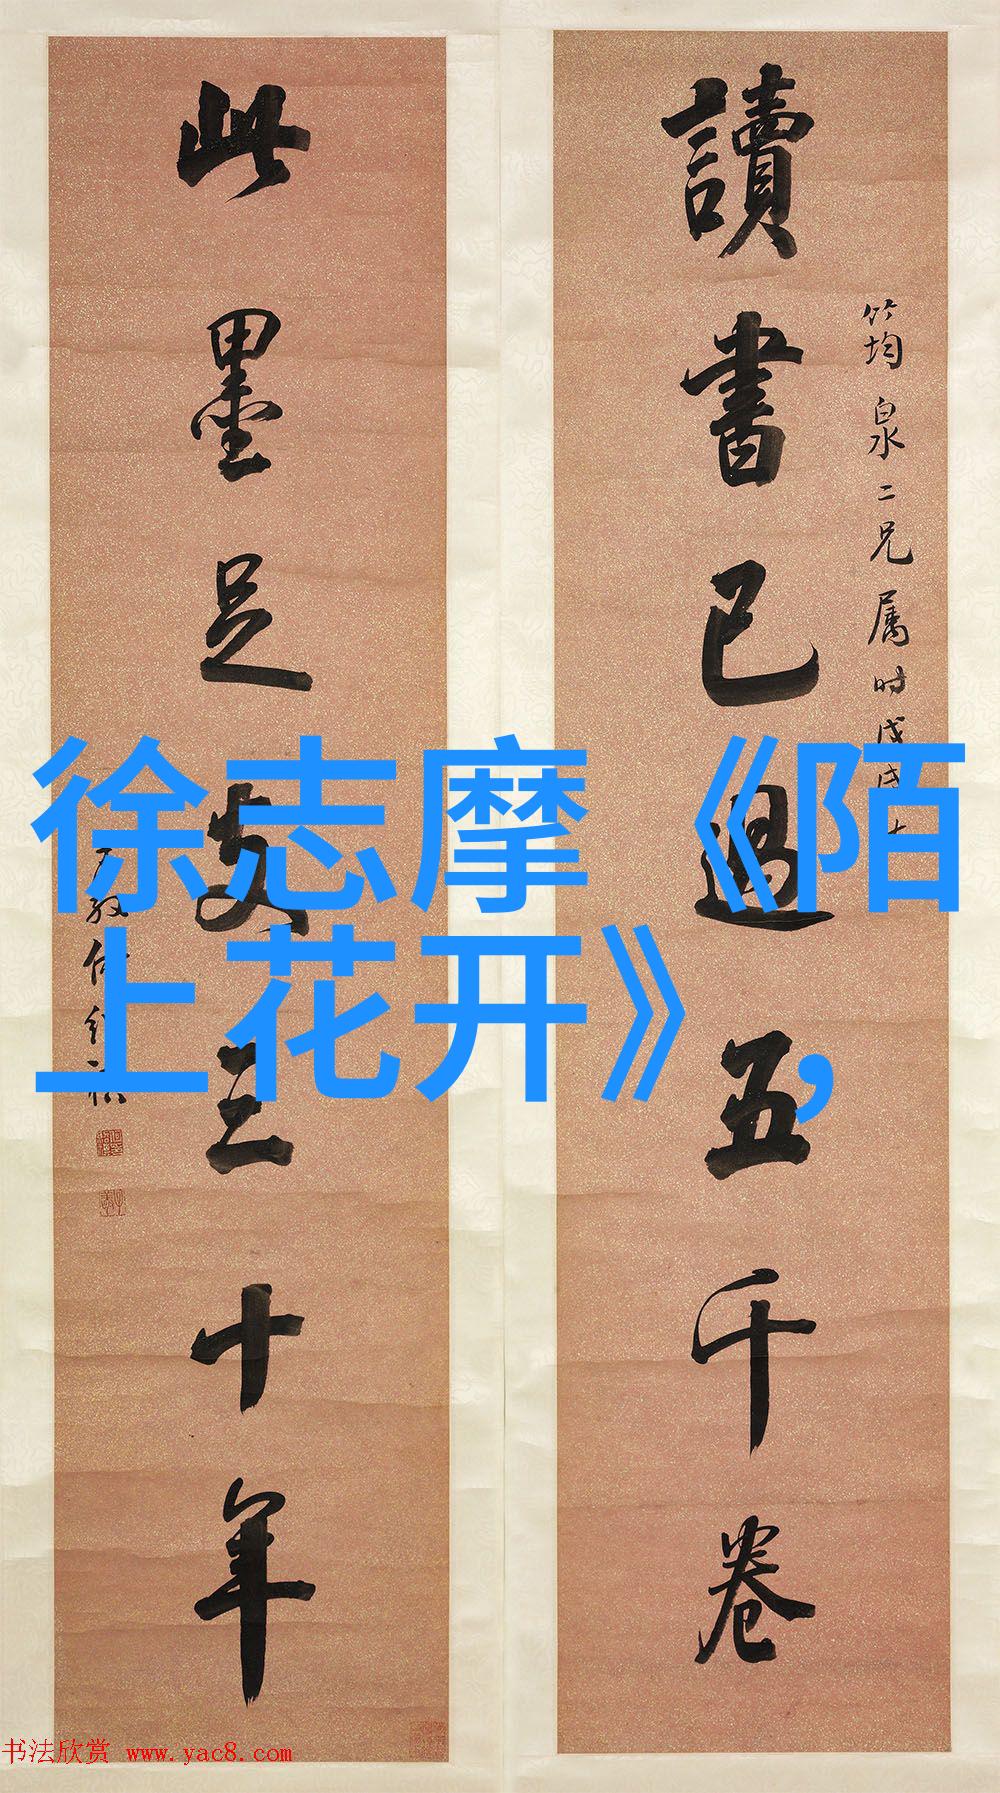 讀書已過五千卷
竹均泉二兄属时戊戌
此墨足支三十年
徐志摩《陌
上花开》，
书法欣赏 www.yac8.com